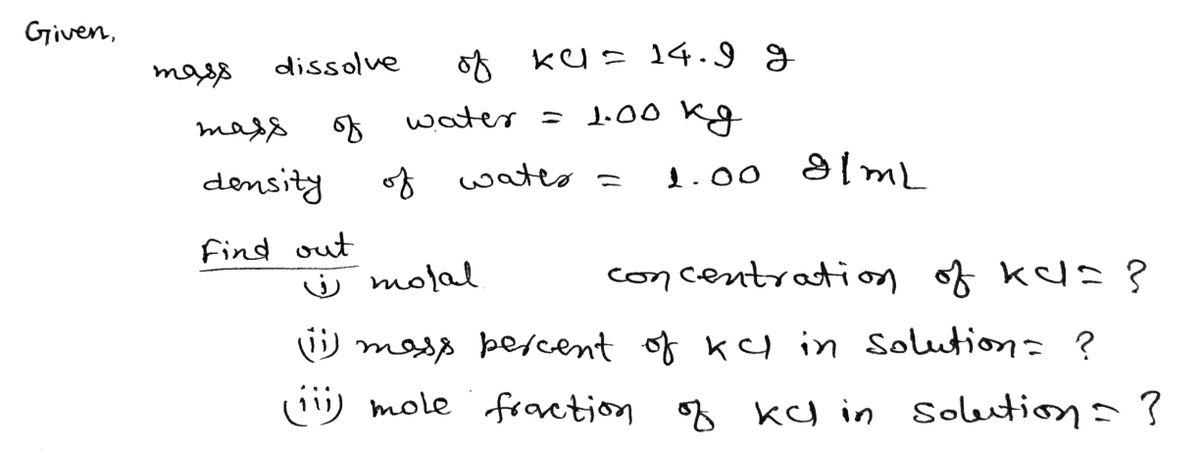 Given,
mass dissolve of KCl = 14.9 g
mass of water = 1.00 kg
density of water = 1.00 g/mL
Find out
(i) molal concentration of KCl = ?
(ii) mass percent of KCl in solution = ?
(iii) mole fraction of KCl in solution = ?